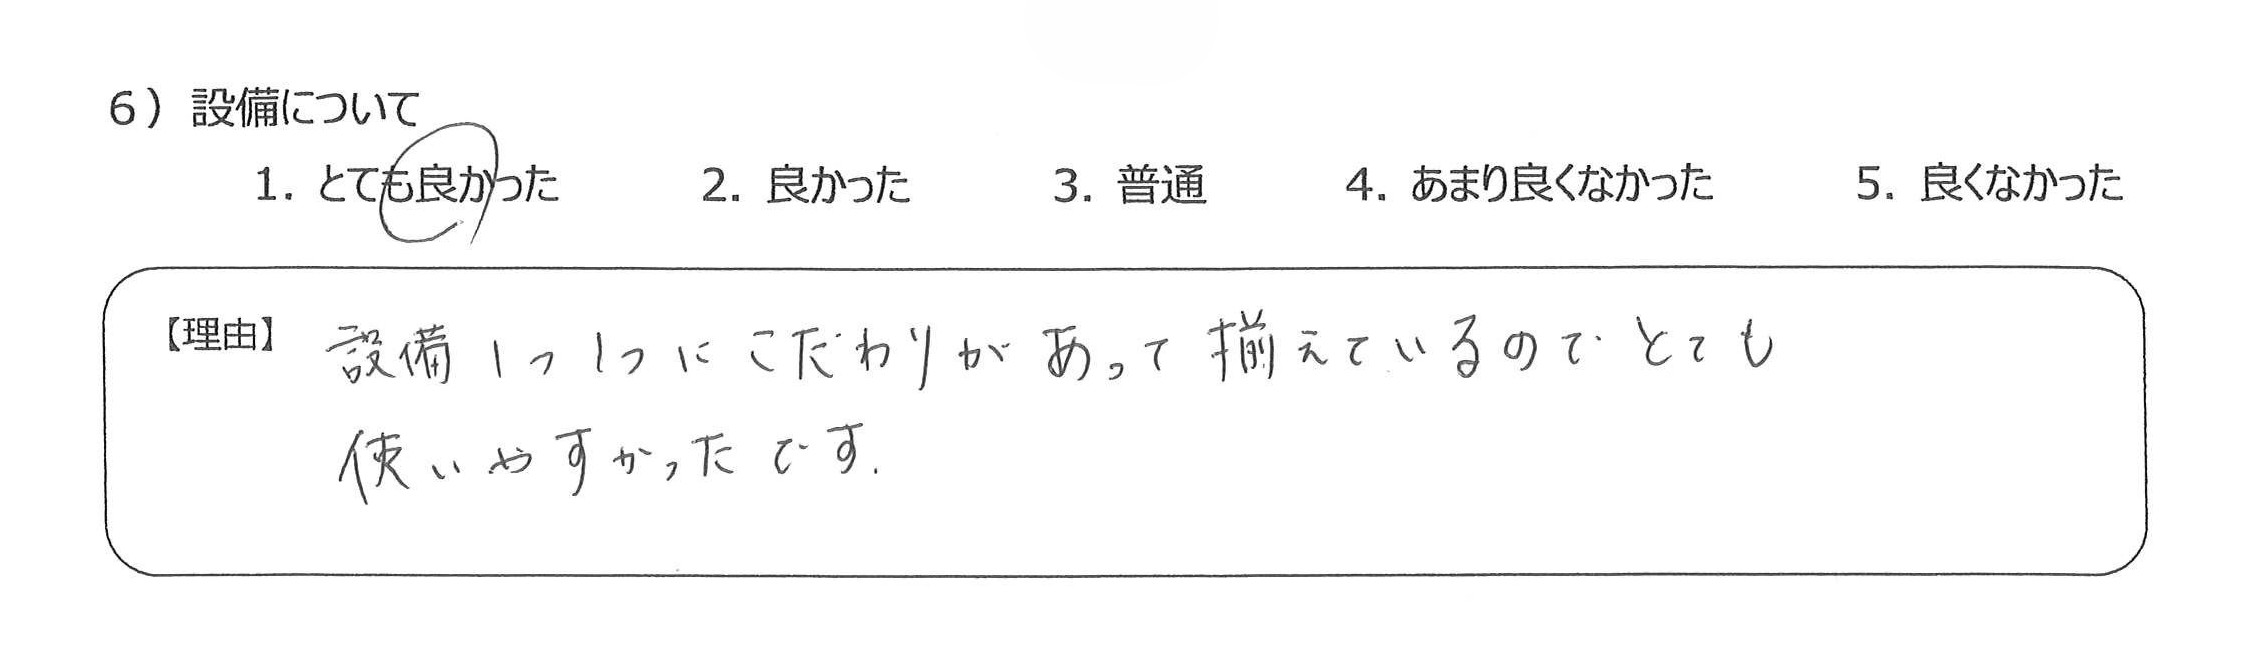 6）設備について
1. とても良かった 2. 良かった 3. 普通 4. あまり良くなかった 5. 良くなかった
【理由】設備1つ1つにこだわりがあって揃えているのでとても
使いやすかったです.